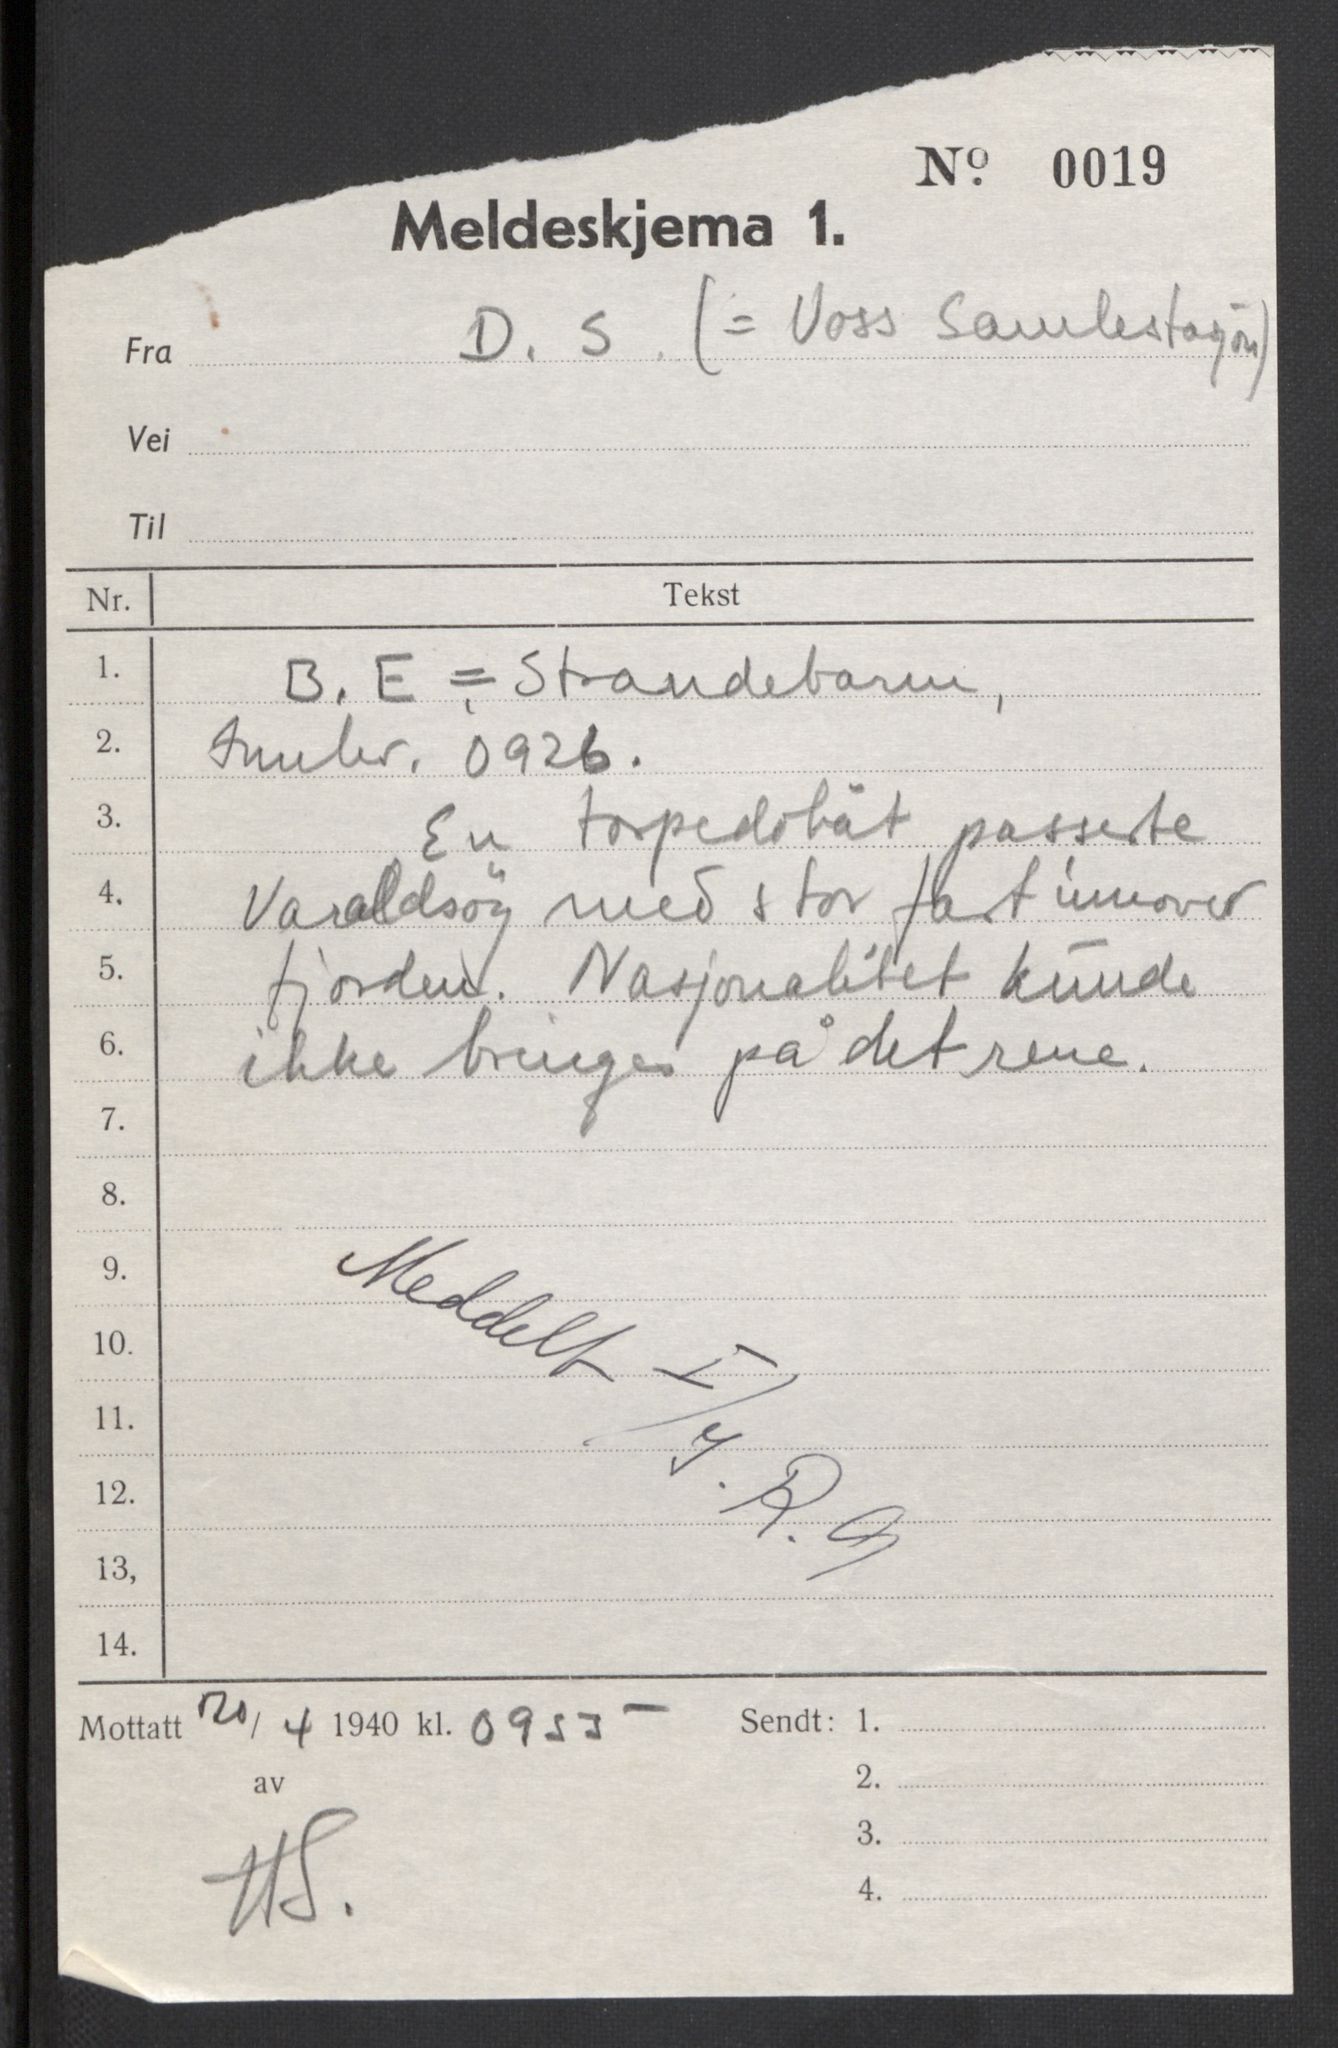 Nº. 0019
Meldeskjema 1.
Fra D. S. (= Voss Samlestasjon)
Vei
Til
Nr. Tekst
1. B. E = Strandebarm,
2. 0926.
3. En torpedobåt passerte
4. Varaldsöy med stor fart innover
5. fjorden. Nasjonalitet kunde
6. ikke bringes på det rene.
7.
8.
9. Meddelt I/4. R.
10.
11.
12.
13,
14.
Mottatt 20/4 1940 kl. 0955 Sendt: 1.
av 2.
HS. 3.
4.